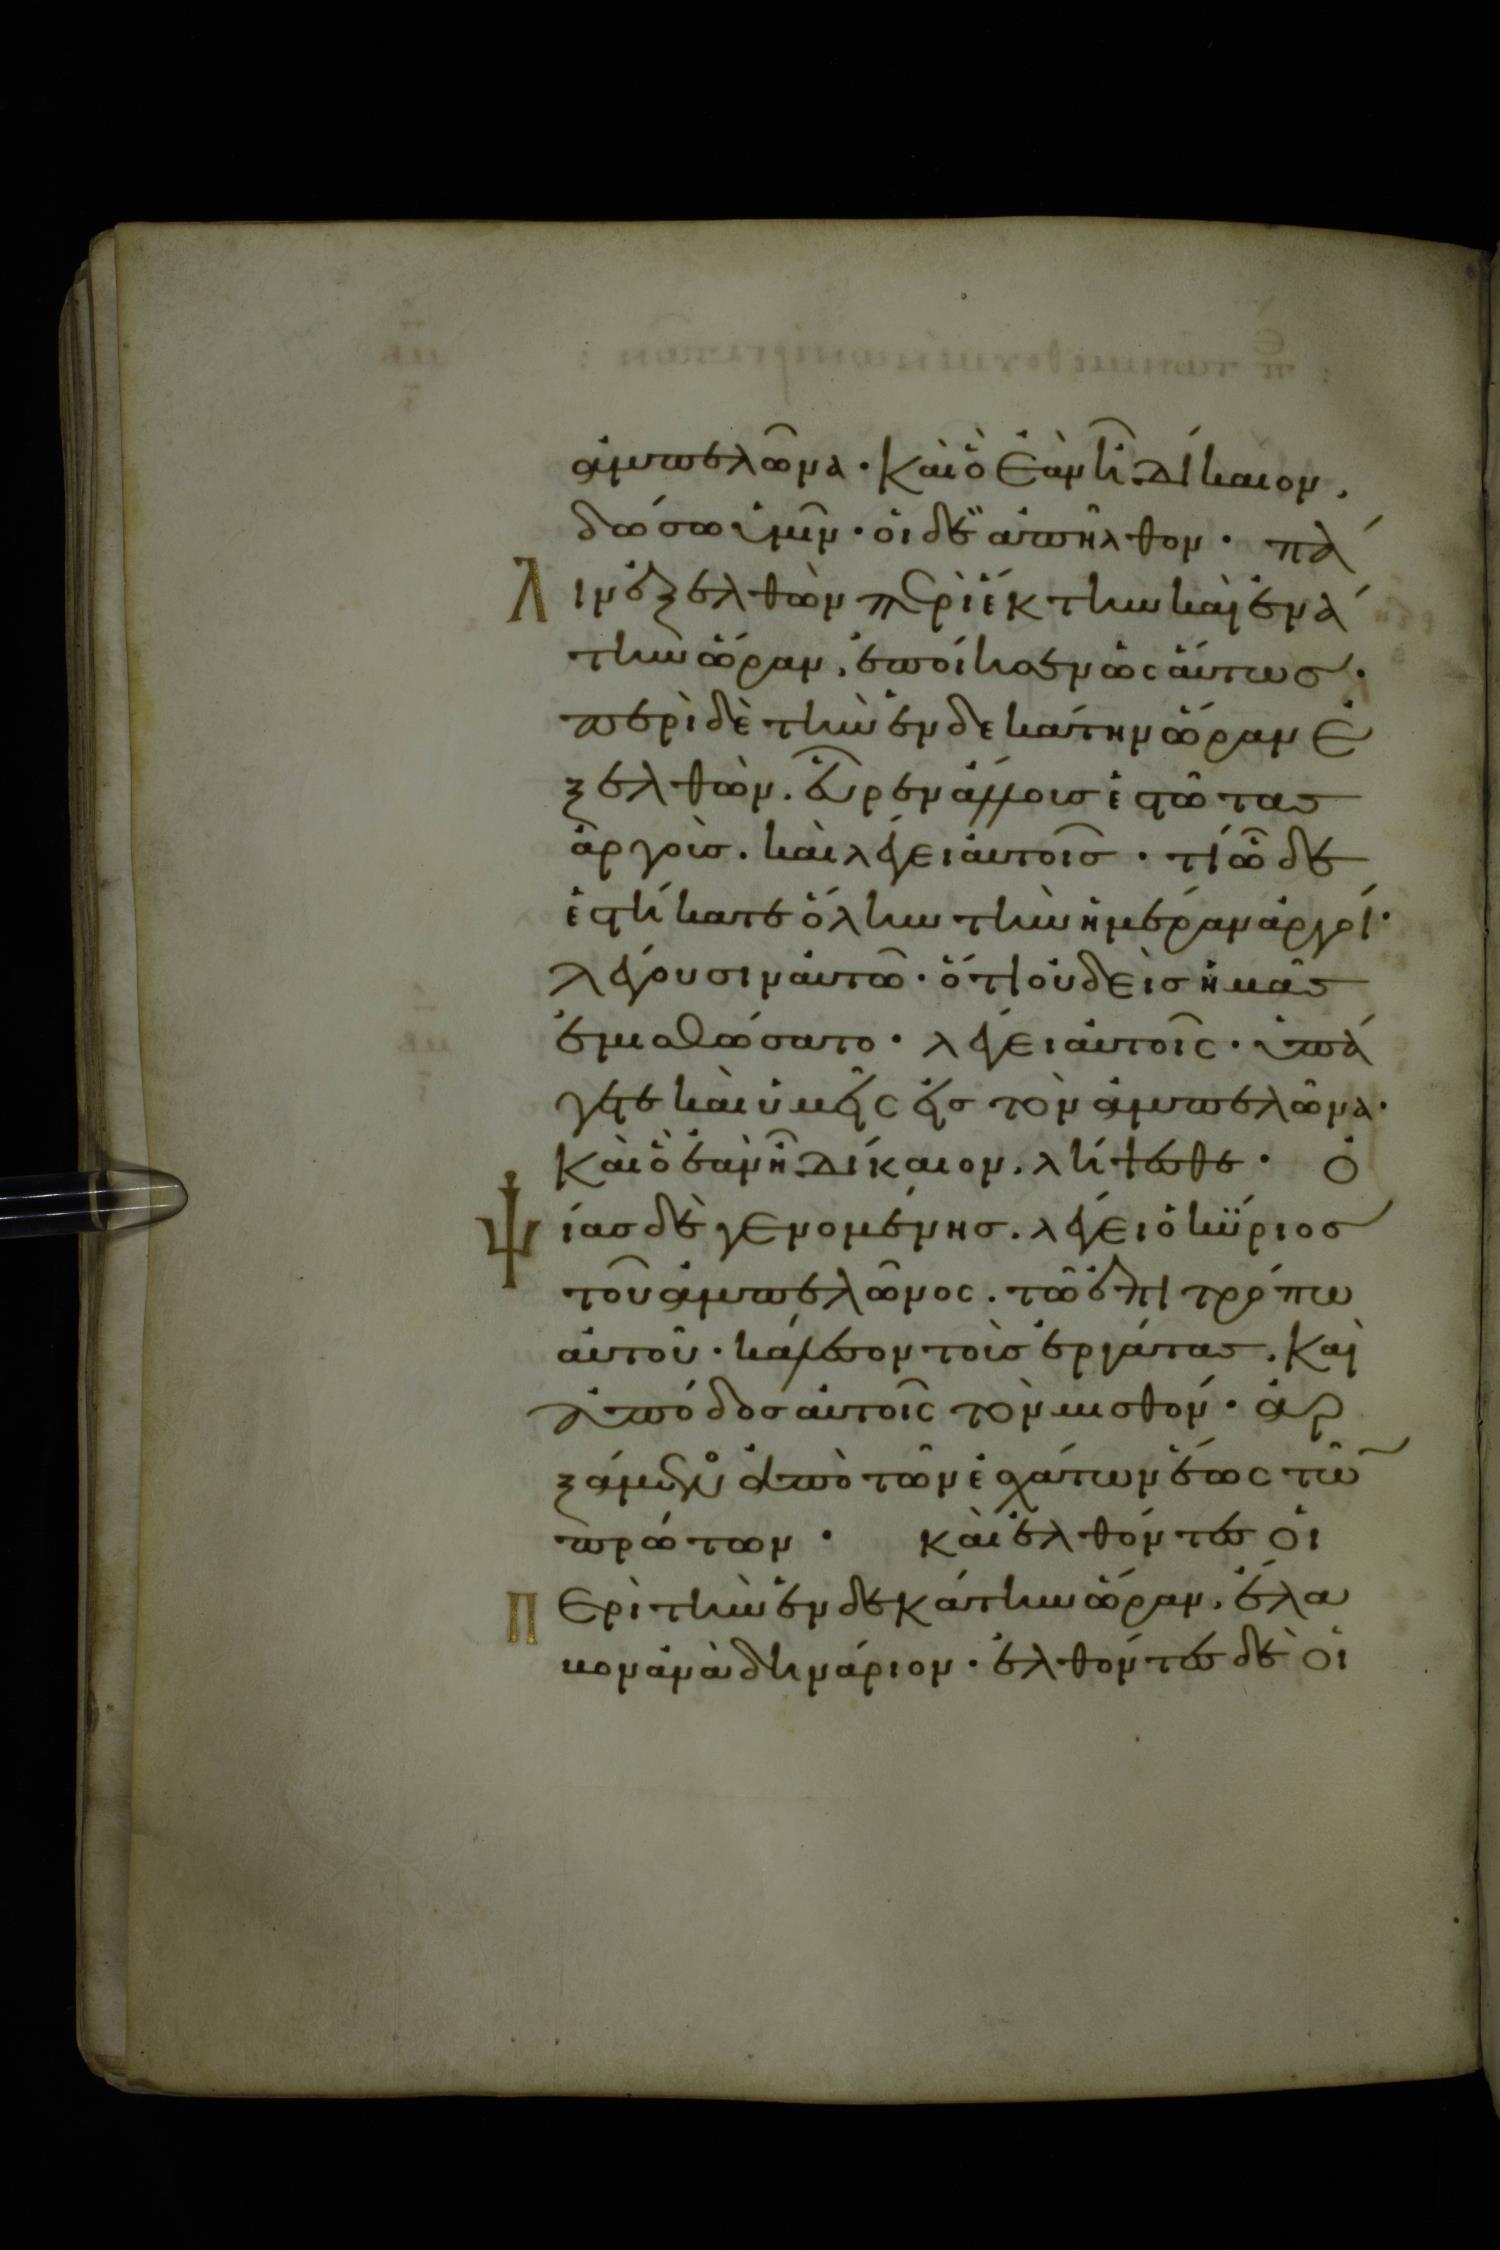 ἀμπελῶνα· καὶ ὃ ἐὰν ἦ δίκαιον,
δώσω ὑμῖν· οἱ δὲ ἀπῆλθον· πά
λιν ἐξελθὼν περὶ ἕκτην καὶ ἐνά
την ὥραν, ἐποίησεν ὡσαύτως·
περὶ δὲ τὴν ἑνδεκάτην ὥραν ἐ
ξελθὼν. εὗρεν ἄλλους ἑστῶτας
ἀργούς. καὶ λέγει αὐτοῖς· τί ὧδε
ἑστήκατε ὅλην τὴν ἡμέραν ἀργοί·
λέγουσιν αὐτῶ· ὅτι οὐδεὶς ἡμᾶς
ἐμισθώσατο· λέγει αὐτοῖς· ὑπά
γετε καὶ ὑμεῖς εἰς τὸν ἀμπελῶνα·
καὶ ὃ ἐὰν ἦ δίκαιον, λήψεσθε· ὀ
ψίας δὲ γενομένης. λέγει ὁ κύριος
τοῦ ἀμπελῶνος. τῶ ἐπιτρόπω
αὐτοῦ· κάλεσον τοὺς ἐργάτας, καὶ
ἀπόδος αὐτοῖς τὸν μισθόν· ἀρ
ξάμενος ἀπὸ τῶν ἐσχάτων ἕως τῶν
πρώτων· καὶ ἐλθόντες οἱ
περὶ τὴν ἑνδεκάτην ὥραν, ἔλα
βον ἀνὰ δηνάριον· ἐλθόντες δὲ οἱ